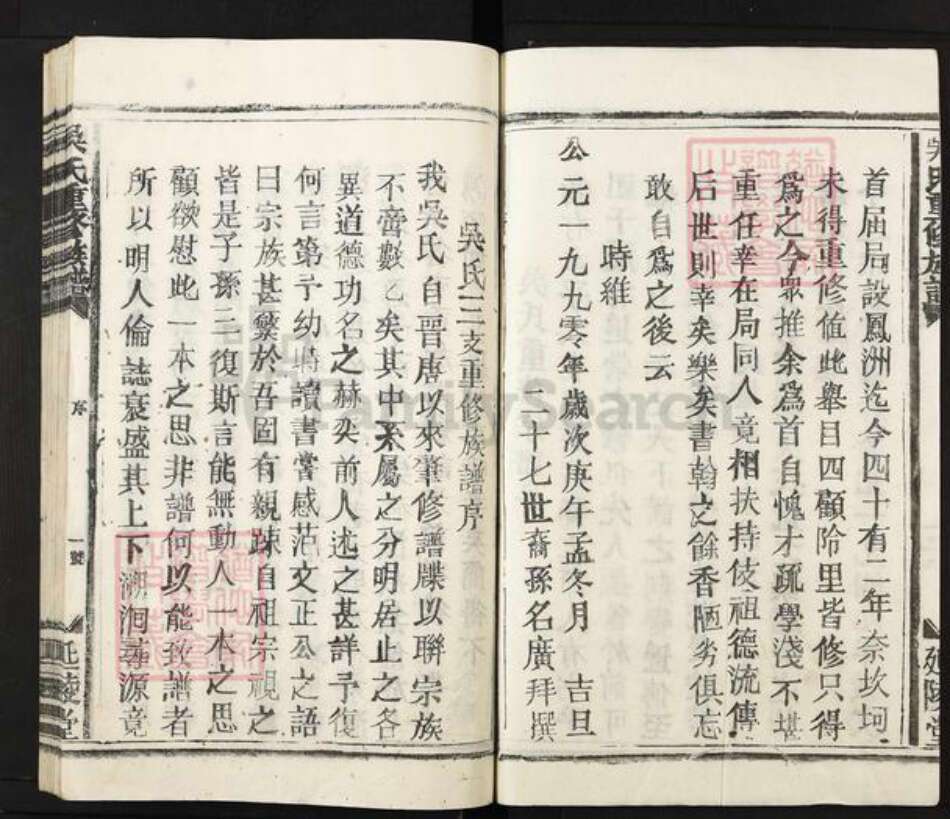 吳氏重修族譜
延陵堂
首届局設鳳洲迄今四十有二年奈坎坷
未得重修值此舉目四顧隂里皆修只得
爲之今眾推余爲首自愧才疏學淺不堪
重任幸在局同人竟相扶持伎祖德流傳
后世則幸矣樂矣書翰之餘香陋劣俱忘
敢自爲之後云
時維
公元一九九零年歲次庚午孟冬月 吉旦
二十七世裔孫名廣拜撰
吳氏三支重修族譜序
我吳氏自晋唐以來肇修譜牒以聯宗族
不啻數乙矣其中系屬之分明居止之各
異道德功名之赫奕前人述之甚詳予復
何言第予幼時讀書嘗感范文正公之語
曰宗族甚繁於吾固有親踈自祖宗視之
皆是子孫三復斯言能無動人一本之思
顧欲慰此一本之思非譜何以能致譜者
所以明人倫誌衰盛其上下溯洄尋源竟
吳氏重修族譜
序
一號
延陵堂
FamilySearch